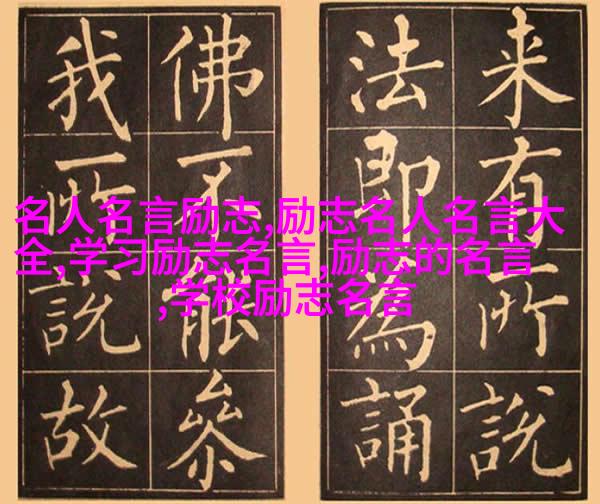 来有所說
法即為誦
佛不能參
我所說故
名人名言励志,励志名人名言大
全,学习励志名言,励志的名言
,学校励志名言